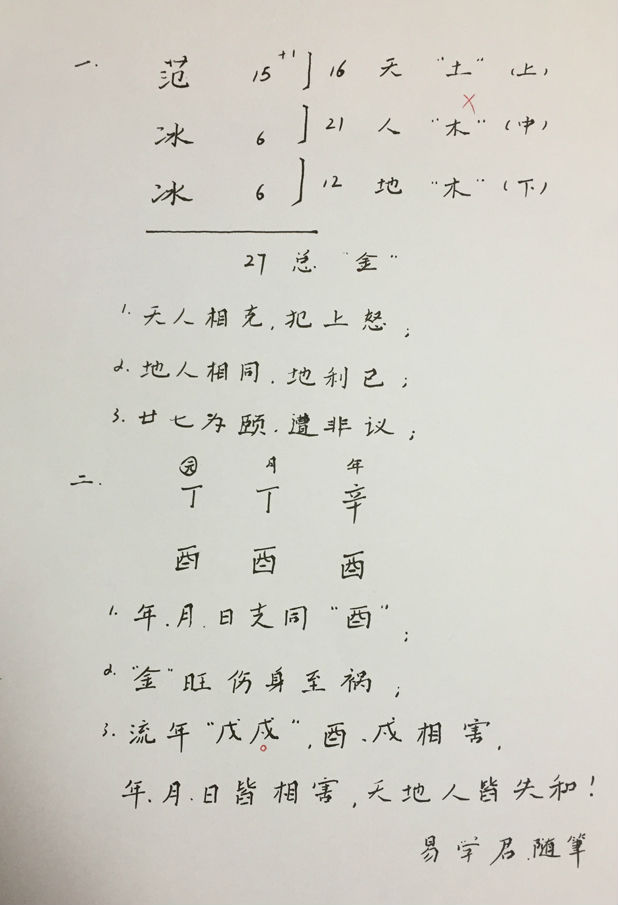 一. 范 15 +1 16 天 “土” (上)
冰 6 21 人 “木” (中)
冰 6 12 地 “木” (下)
27 总 “金”
1. 天人相克,犯上怒;
2. 地人相同.地利已;
3. 廿七为颐.遭非议;
二. 日 月 年
丁 丁 辛
酉 酉 酉
1. 年.月.日支同“酉”;
2. “金”旺伤身至祸;
3. 流年“戊戌”,酉.戌相害,
年.月.日皆相害,天地人皆失和!
易学君.随筆